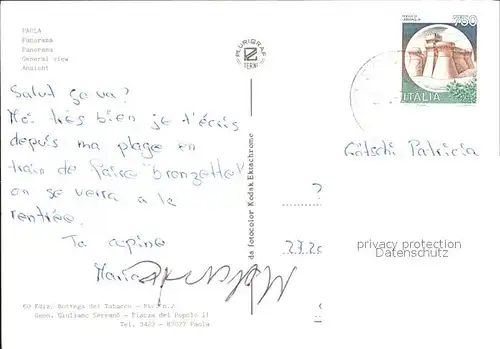 PAOLA
Panorama
Panorama
General view
Ansicht
PLURIGRAF
TERNI
750
ITALIA
Salut ça va?
Moi très bien je t'écris
depuis ma plage en
train de faire "bronzette"
on se verra a la
rentrée.
Ta copine
Maria
Götschi Patricia
da fotocolor Kodak Ektachrome
privacy protection
Datenschutz
60 Ediz. Bottega del Tabacco - Piv. n.2
Geom. Giuliano Serranò - Piazza del Popolo 11
Tel. 3422 - 87027 Paola